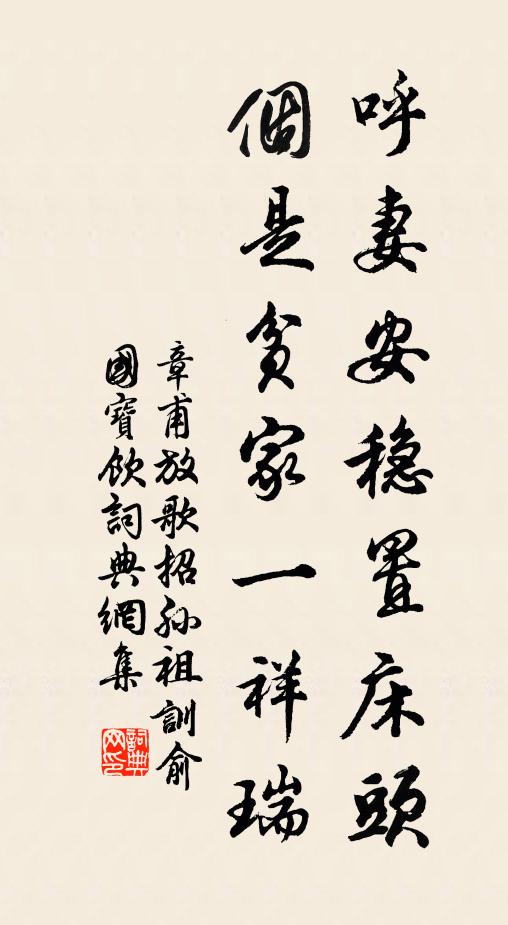 呼妻安稳置床頭
個是貧家一祥瑞
章甫放歌招孙祖訓俞
國寶飲詞典網集
詞典
网印